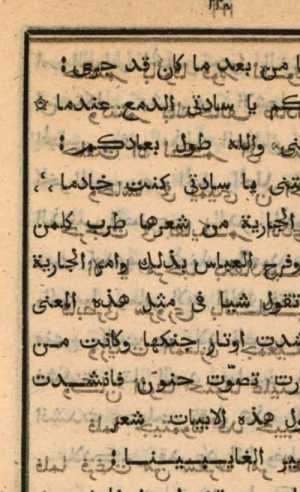 ٢٢٢
ا من بعد ما كان قد جرى!
كم يا سادتى الدمع عندما ☆
نى والله طول بعادكم!
تنى يا سادتى كنت خادما
الجارية من شعرها طرب كلمن
وفرح العباس بذلك وامر الجارية
تقول شيا فى مثل هذه المعنى
شدت اوتار جنكها وكانت من
رت تصوّت حنون فانشدت
ول هذه الابيات شعر
ير الغايبينا!